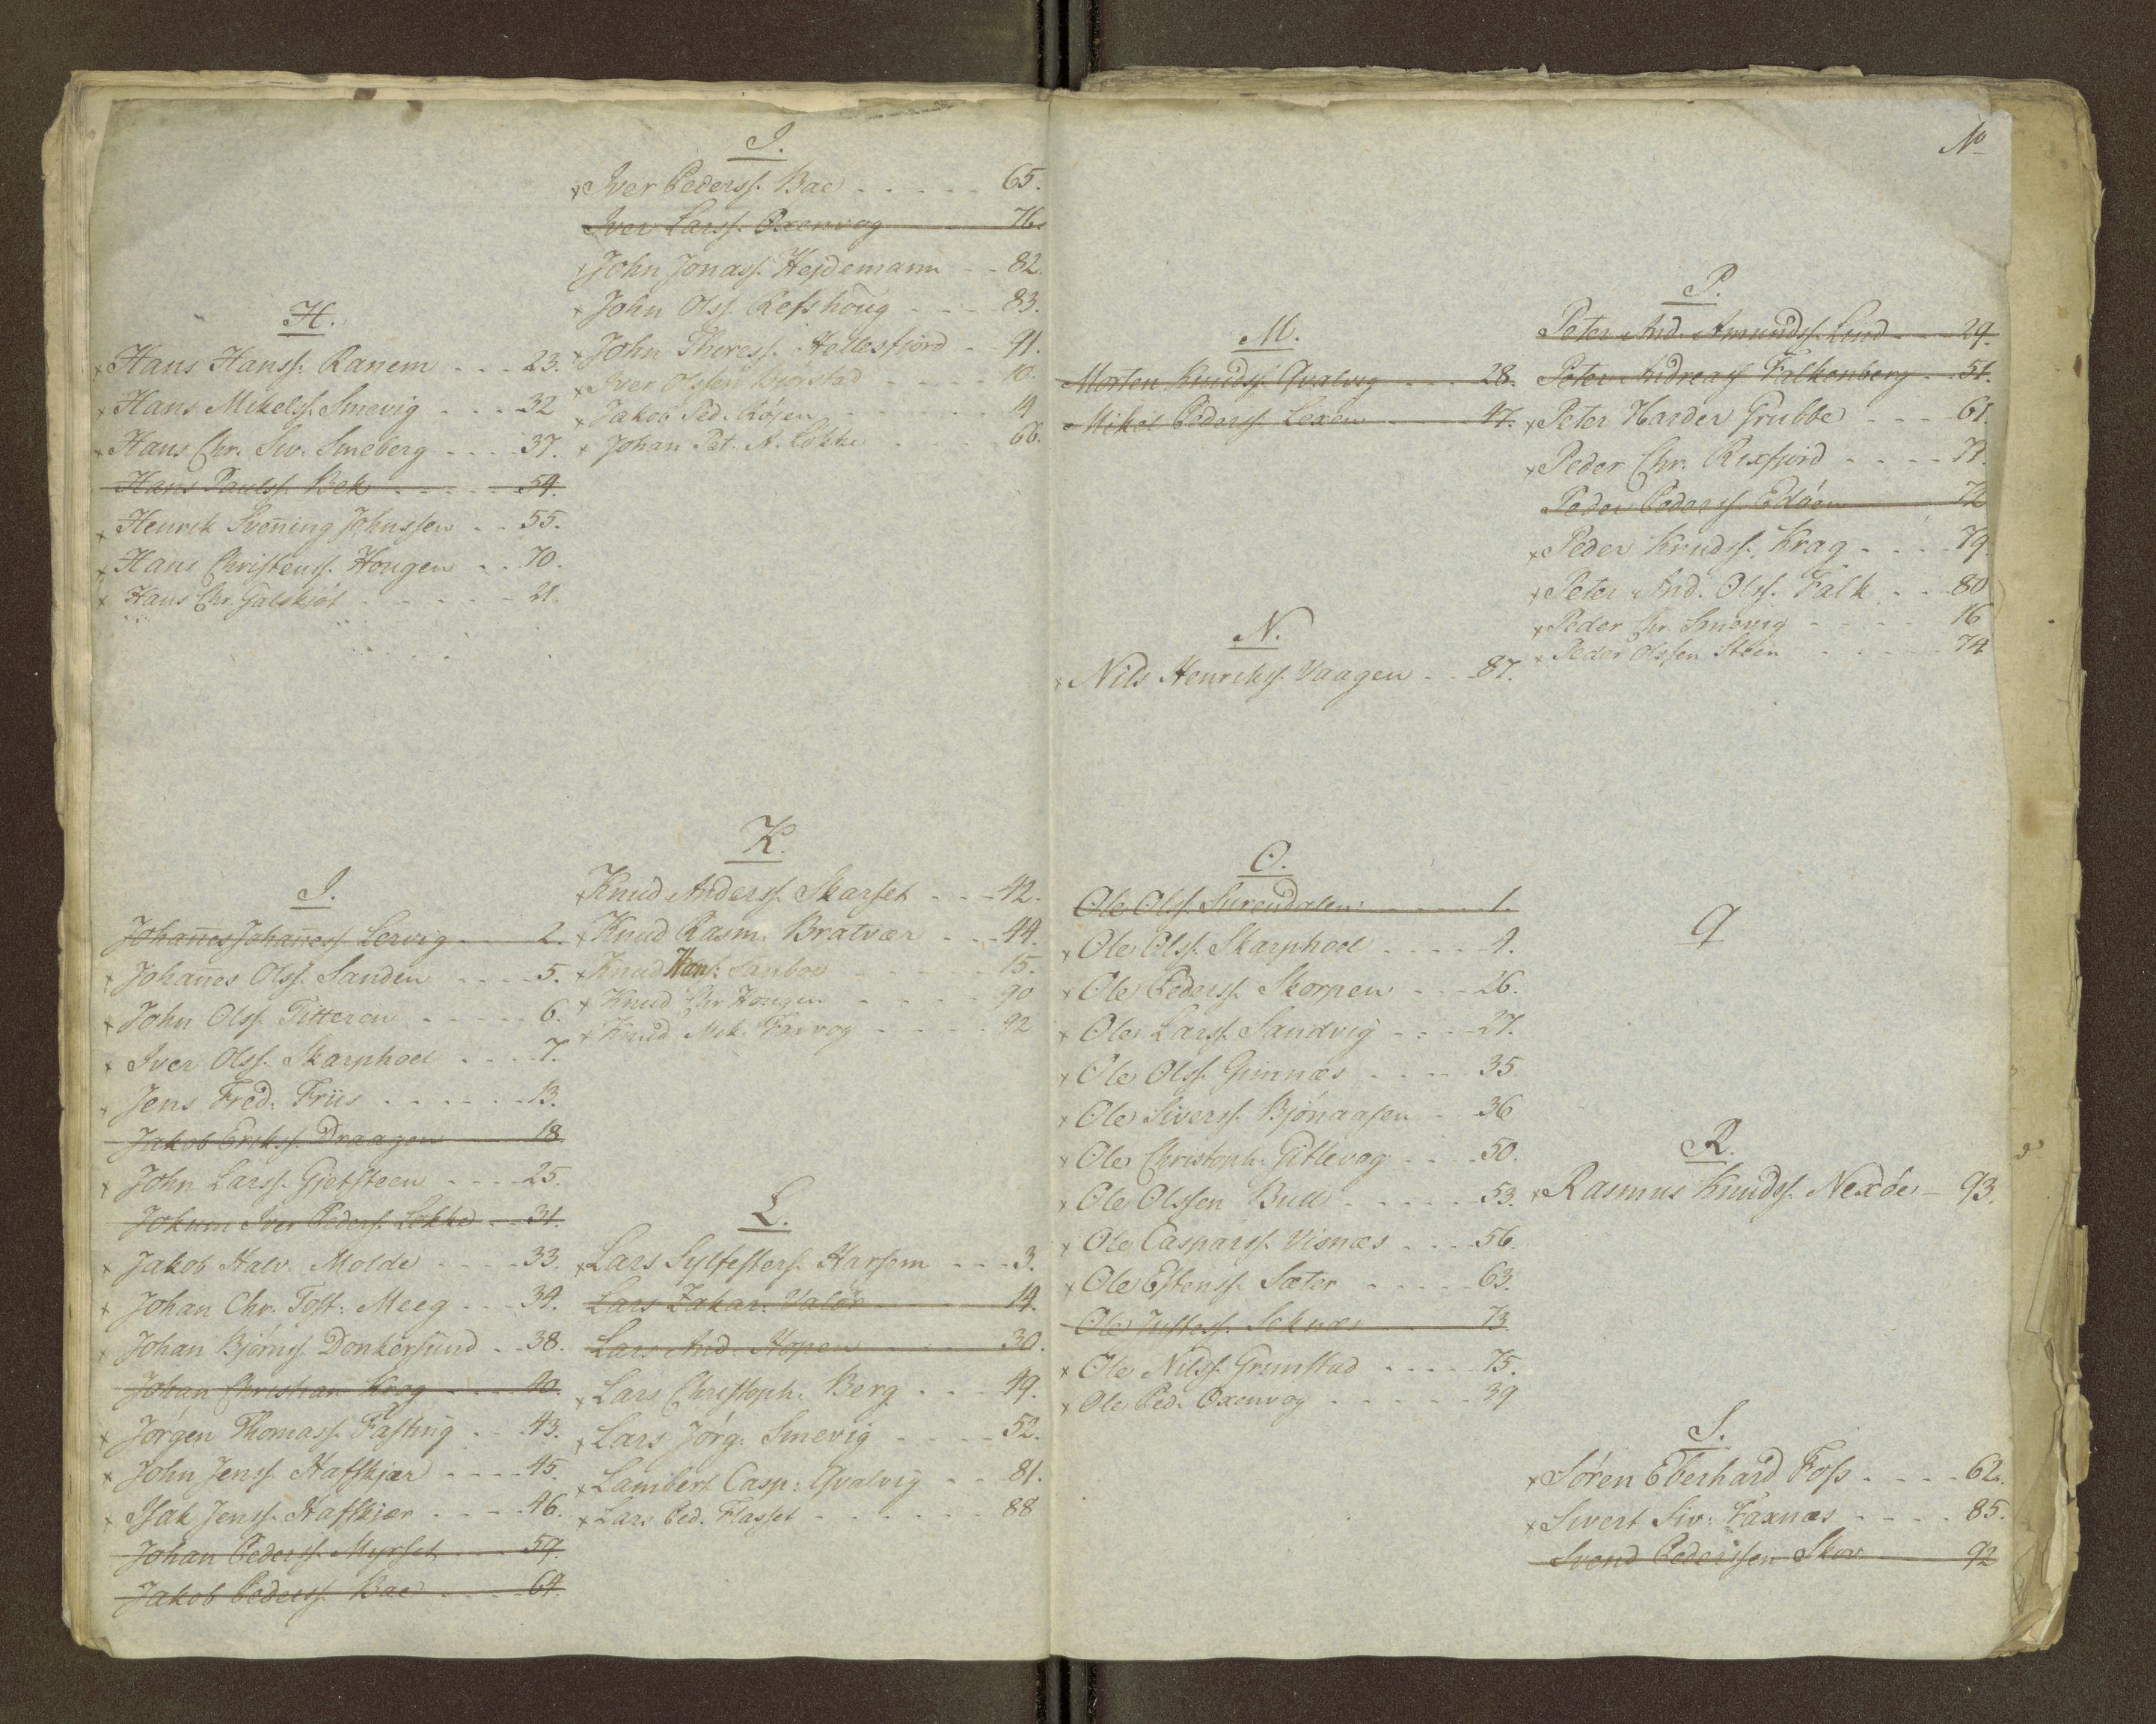 H.
Hans Hanss. Ranem - - - 23.
Hans Mikelss. Smevig - - - 32
Hans Chr. Siv. Smeberg - - - 37.
Hans Paulss. Bek - - - - 54.
Henrik Svening Johnssen - - 55.
Hans Christenss. Hougen - - 70.
Hans Chr. Galskjöt - - - - - 21.
I.
Johanes Johaness. Lervig - - 2.
Johanes Olss. Sanden - - - 5.
John Olss. Titteren - - - - 6.
Iver Olss. Skarphoel - - - - 7.
Jens Fred. Friis - - - - - 13.
Jakob Erikss. Draagen 18
John Larss. Gjetsteen - - - 25.
Jokum Iver Pederss. Løkke - - 31.
Jakob Halv. Molde - - - - 33.
Johan Chr. Tost: Meeg - - - 34.
Johan Bjørnss. Donkersund - - 38.
Johan Christian Krog - - - 40.
Jørgen Thomass. Fasting - - - 43.
John Jenss. Hafskjær - - - - 45.
Isak Jenss. Hafskjær - - - - 46.
Johan Pederss. Myrset - - - 59.
Jakob Pederss. Bae - - - - 64.
I.
Iver Pederss. Bae - - - - - 65.
Iver Larss. Oxenvog 76.
John Jonass. Hejdemann - - 82.
John Olss. Refshoug - - - 83.
John Theress. Hellesfjord - 91.
Iver Olssen Bjørstad - - - - - 10.
Jakob Ped. Røsen - - - - - 19
Johan Pet. N. Løkke - - - - 66.
K.
Knud Anderss. Skarset - - - 42.
Knud Rasm. Bratvær - - - 44.
Knud Hans: Sanboe - - - - - 15.
Knud Chr. Hougen - - - - - 90
Knud Mik. Farvog - - - - - 92
L.
Lars Sylfesters. Harsem - - - 3.
Lars Zakar. Valör 14.
Lars And. Hopen 30.
Lars Christoph. Berg - - - 49.
Lars Jörg. Smevig - - - - 52.
Lambert Casp: Qvalvig - - 81.
Lars Ped. Flasset - - - - - - 88
M.
Morten Knudss. Qvalvig - - - 28.
Mikel Pederss. Lexen - - - 47.
N.
Nils Henrikss. Vaagen - - - 87.
O.
Ole Olss. Surendalen - - - - 1.
Ole Olss. Skarphoel - - - - 4.
Ole Pederss. Skorpen - - - 26.
Ole Larss. Sandvig - - - - 27.
Ole Olss. Gimnæs - - - - 35.
Ole Siverss. Bjönaasen - 36
Ole Christoph. Gitlevag - - - 50.
Ole Olssen Bull - - - - - 53.
Ole Casparss. Visnæs - - - 56.
Ole Estenss. Sæter - - - - - 63.
Ole Justess. Seknæs 73.
Ole Nilss. Grimstad - - - - 75.
Ole Ped. Oxenvog - - - - - - 39
No
P.
Peter And. Amundss. Lund - - - 29.
Peter Andreass. Falkenberg - - 51.
Peter Harder Grubbe - - - 61.
Peder Chr. Rixfjord - - - - 71.
Peder Pederss. Edöen 72
Peder Knudss. Krag - - - - 79.
Peter And. Olss. Falk - - - 80
Peder Chr. Smevig - - - - 16
Peder Olssen Steen - - - - - 74
Q
R.
Rasmus Knudss. Nexöe - 93.
S.
Sören Eberhard Foss - - - - 62.
Sivert Siv: Faxnæs - - - - 85.
Svend Pederssen Skov 92